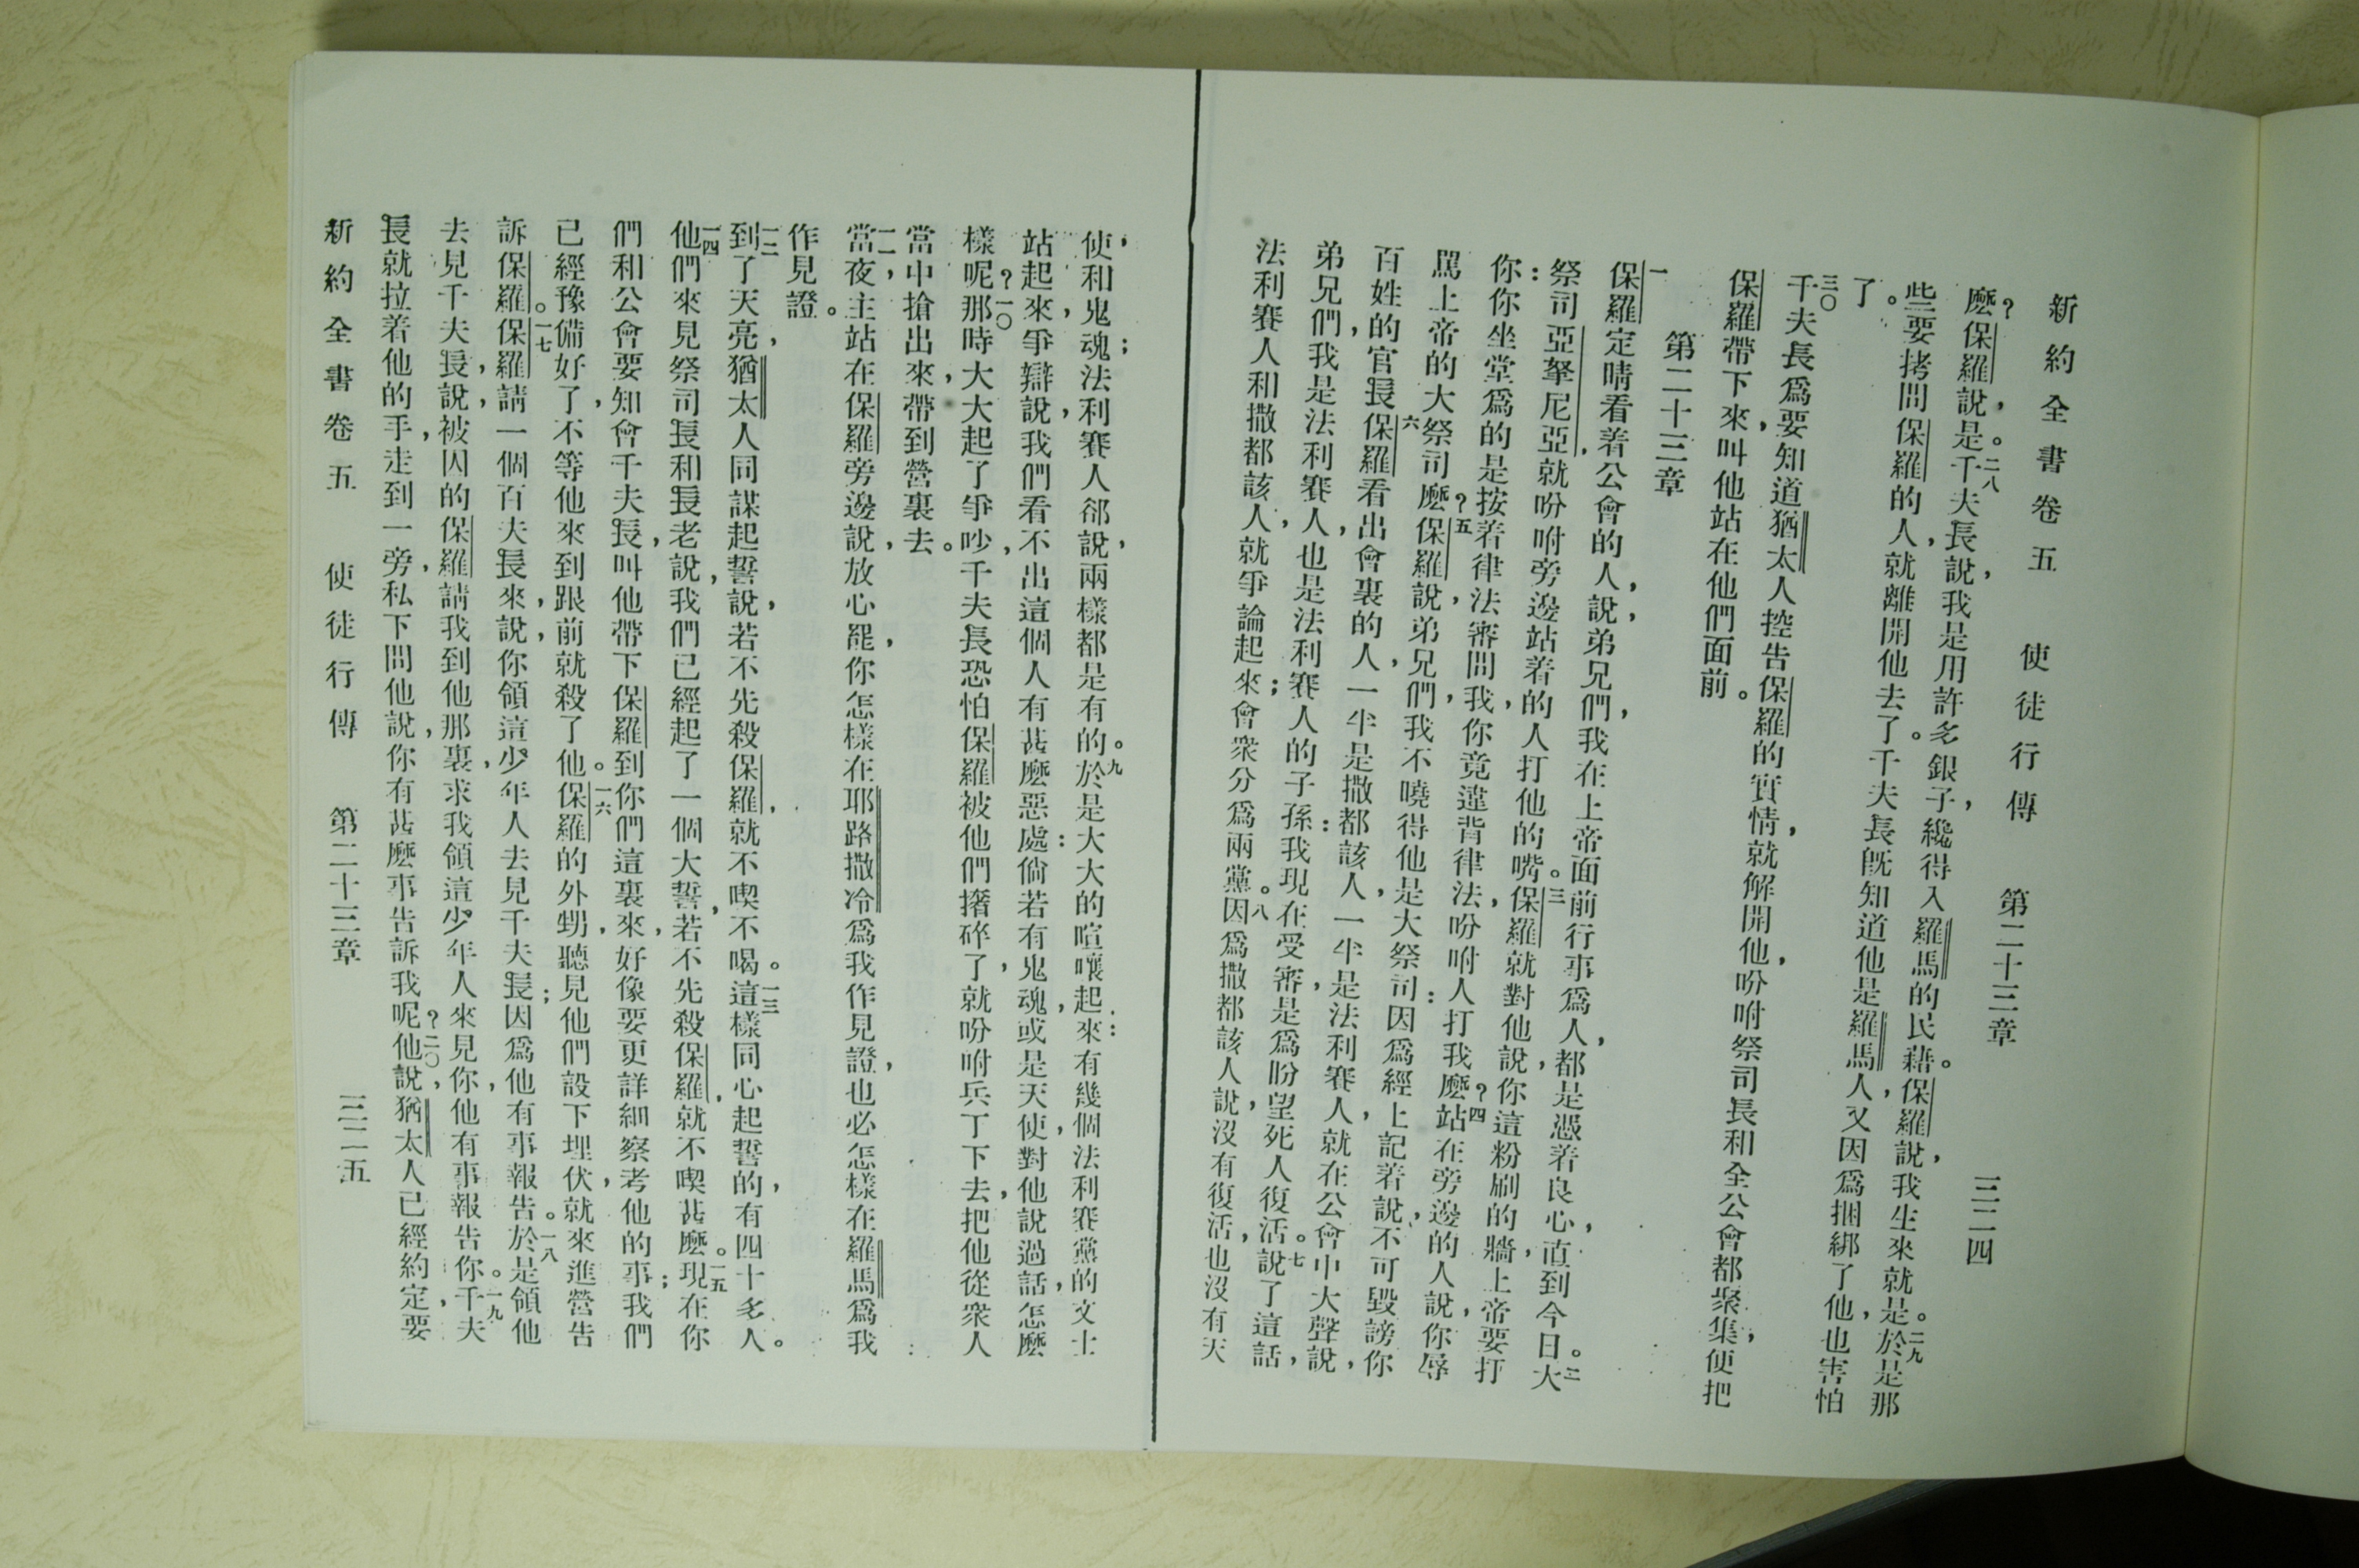 新約全書卷五 使徒行傳 第二十三章 三二四
麼？保羅說，是。二八千夫長說，我是用許多銀子，纔得入羅馬的民藉。保羅說，我生來就是。二九於是那
些要拷問保羅的人，就離開他去了。千夫長旣知道他是羅馬人，又因爲捆綁了他，也害怕
了。
三〇千夫長爲要知道猶太人控告保羅的實情，就解開他，吩咐祭司長和全公會都聚集，便把
保羅帶下來，叫他站在他們面前。
第二十三章
一保羅定晴看着公會的人，說，弟兄們，我在上帝面前行事爲人，都是憑着良心，直到今日。二大
祭司亞拏尼亞，就吩咐旁邊站着的人打他的嘴。三保羅就對他說，你這粉刷的牆，上帝要打
你：你坐堂爲的是按着律法審問我，你竟違背律法，吩咐人打我麼？四站在旁邊的人說，你辱
罵上帝的大祭司麼？五保羅說，弟兄們，我不曉得他是大祭司：因爲經上記着說，不可毀謗你
百姓的官長。六保羅看出會裏的人，一半是撒都該人，一半是法利賽人，就在公會中大聲說，
弟兄們，我是法利賽人，也是法利賽人的子孫：我現在受審，是爲盼望死人復活。七說了這話，
法利賽人和撒都該人，就爭論起來；會衆分爲兩黨。八因爲撒都該人說，沒有復活，也沒有天
使，和鬼魂；法利賽人郤說，兩樣都是有的。九於是大大的喧嚷起來：有幾個法利賽黨的文士
站起來，爭辯說，我們看不出這個人有甚麼惡處：倘若有鬼魂，或是天使，對他說過話，怎麼
樣呢？一〇那時大大起了爭吵，千夫長恐怕保羅被他們撦碎了，就吩咐兵丁下去，把他從衆人
當中搶出來，帶到營裏去。
一一當夜，主站在保羅旁邊說，放心罷，你怎樣在耶路撒冷爲我作見證，也必怎樣在羅馬爲我
作見證。
一二到了天亮，猶太人同謀起誓，說，若不先殺保羅，就不喫不喝。一三這樣同心起誓的，有四十多人。
一四他們來見祭司長和長老說，我們已經起了一個大誓，若不先殺保羅，就不喫甚麼。一五現在你
們和公會要知會千夫長，叫他帶下保羅到你們這裏來，好像要更詳細察考他的事；我們
已經豫備好了，不等他來到跟前就殺了他。一六保羅的外甥，聽見他們設下埋伏，就來進營告
訴保羅。一七保羅請一個百夫長來，說，你領這少年人去見千夫長；因爲他有事報告。一八於是領他
去見千夫長，說，被囚的保羅請我到他那裏，求我領這少年人來見你，他有事報告你。一九千夫
長就拉着他的手，走到一旁，私下問他說，你有甚麼事告訴我呢？二〇他說，猶太人已經約定，要
新約全書卷五 使徒行傳 第二十三章 三二五